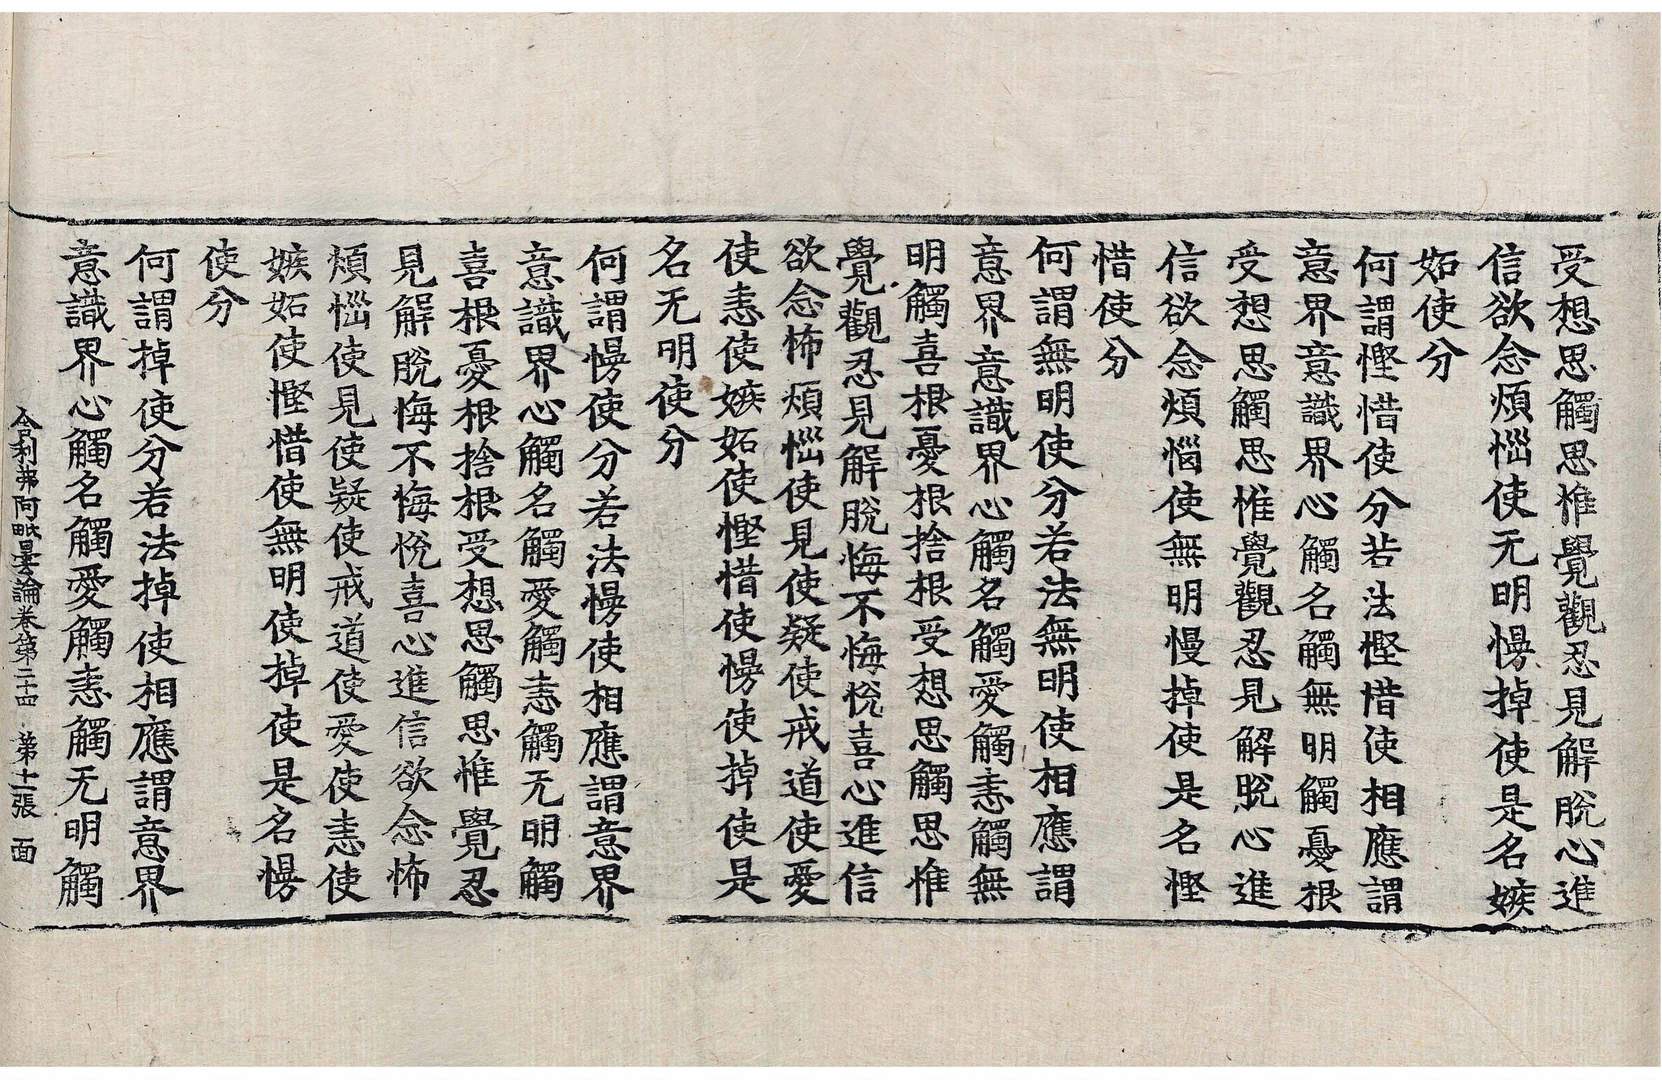 受想思觸思惟覺觀忍見解脫心進
信欲念煩惱使无明慢掉使是名嫉
妬使分
何謂慳惜使分若法慳惜使相應謂
意界意識界心觸名觸無明觸憂根
受想思觸思惟覺觀忍見解脫心進
信欲念煩惱使無明慢掉使是名慳
惜使分
何謂無明使分若法無明使相應謂
意界意識界心觸名觸愛觸恚觸無
明觸喜根憂根捨根受想思觸思惟
覺觀忍見解脫悔不悔悅喜心進信
欲念怖煩惱使見使疑使戒道使愛
使恚使嫉妬使慳惜使慢使掉使是
名无明使分
何謂慢使分若法慢使相應謂意界
意識界心觸名觸愛觸恚觸无明觸
喜根憂根捨根受想思觸思惟覺忍
見解脫悔不悔悅喜心進信欲念怖
煩惱使見使疑使戒道使愛使恚使
嫉妬使慳惜使無明使掉使是名慢
使分
何謂掉使分若法掉使相應謂意界
意識界心觸名觸愛觸恚觸无明觸
舍利弗阿毗曇論卷第二十四 第十二張 面